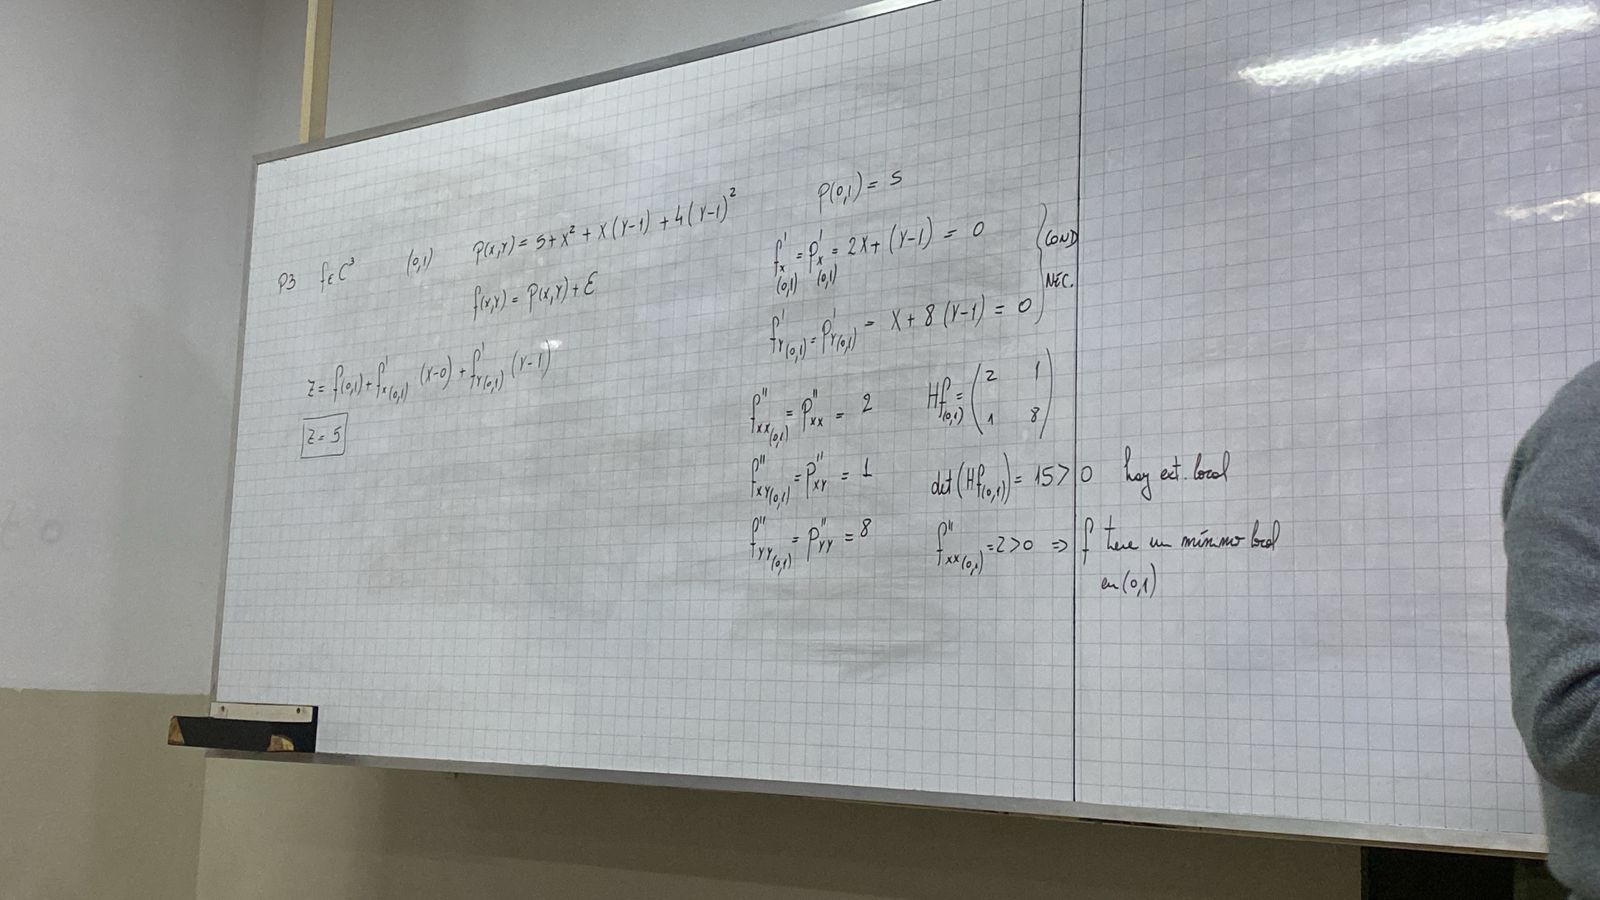 P3 f∈C³ (0,1) P(x,y) = 5+x²+x(y-1)+4(y-1)²
f(x,y) = P(x,y)+ε
z = f(0,1)+f'x(0,1) (x-0)+f'y(0,1) (y-1)
z=5
P(0,1) = 5
f'x(0,1) = P'x(0,1) = 2x+(y-1) = 0
f'y(0,1) = P'y(0,1) = x+8(y-1) = 0
COND
NEC.
f''xx(0,1) = P''xx = 2
f''xy(0,1) = P''xy = 1
f''yy(0,1) = P''yy = 8
Hf(0,1) = (2 1
1 8)
det(Hf(0,1)) = 15>0 hay ext. local
f''xx(0,1)=2>0 ⇒ f tiene un mínimo local
en (0,1)